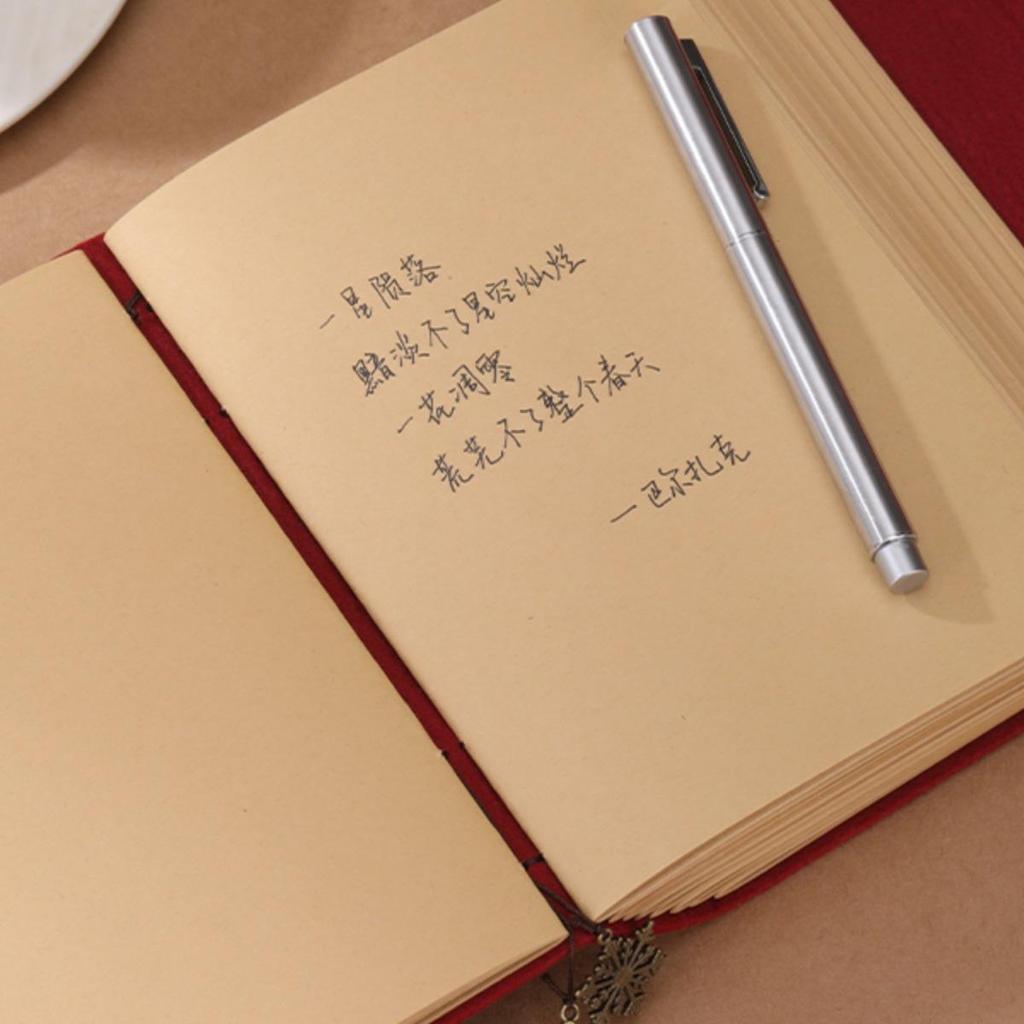 一星陨落
黯淡不了星空灿烂
一花凋零
荒芜不了整个春天
—巴尔扎克